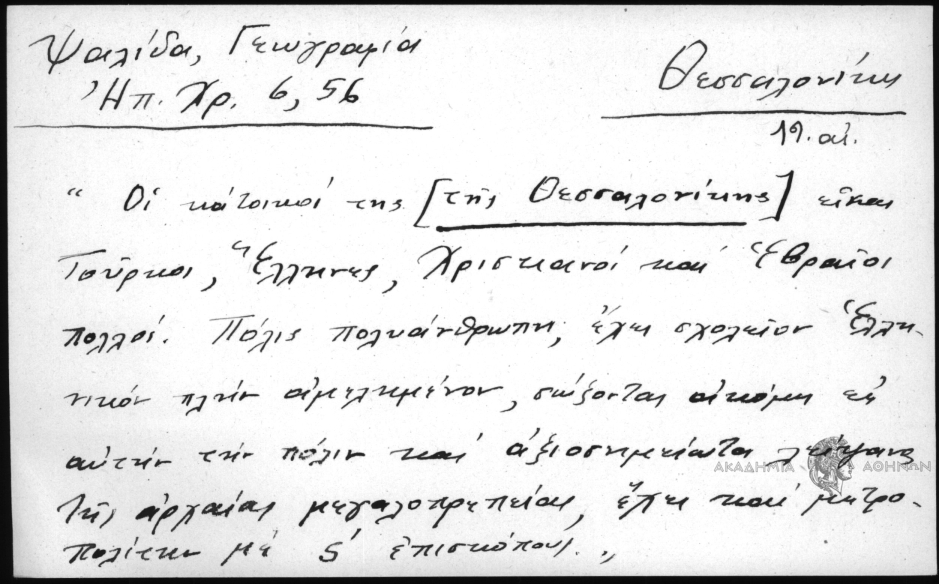 Ψαλίδα, Γεωγραφία
Ἠπ. Χρ. 6, 56
Θεσσαλονίκη
19. αἰ.
“ Οἱ κάτοικοί της [τῆς Θεσσαλονίκης] εἶναι
Τοῦρκοι, Ἕλληνες, Χριστιανοί καί Ἑβραῖοι
πολλοί. Πόλις πολυάνθρωπη, ἔχει σχολεῖον Ἑλλη-
νικόν πλήν ἀμελημένον, σώζονται ἀκόμη εἰς
αὐτήν τήν πόλιν καί ἀξιοσημείωτα λείψανα
τῆς ἀρχαίας μεγαλοπρεπείας, ἔχει καί μητρο-
πολίτην μέ ς΄ ἐπισκόπους. „
ΑΚΑΔΗΜΙΑ ΑΘΗΝΩΝ